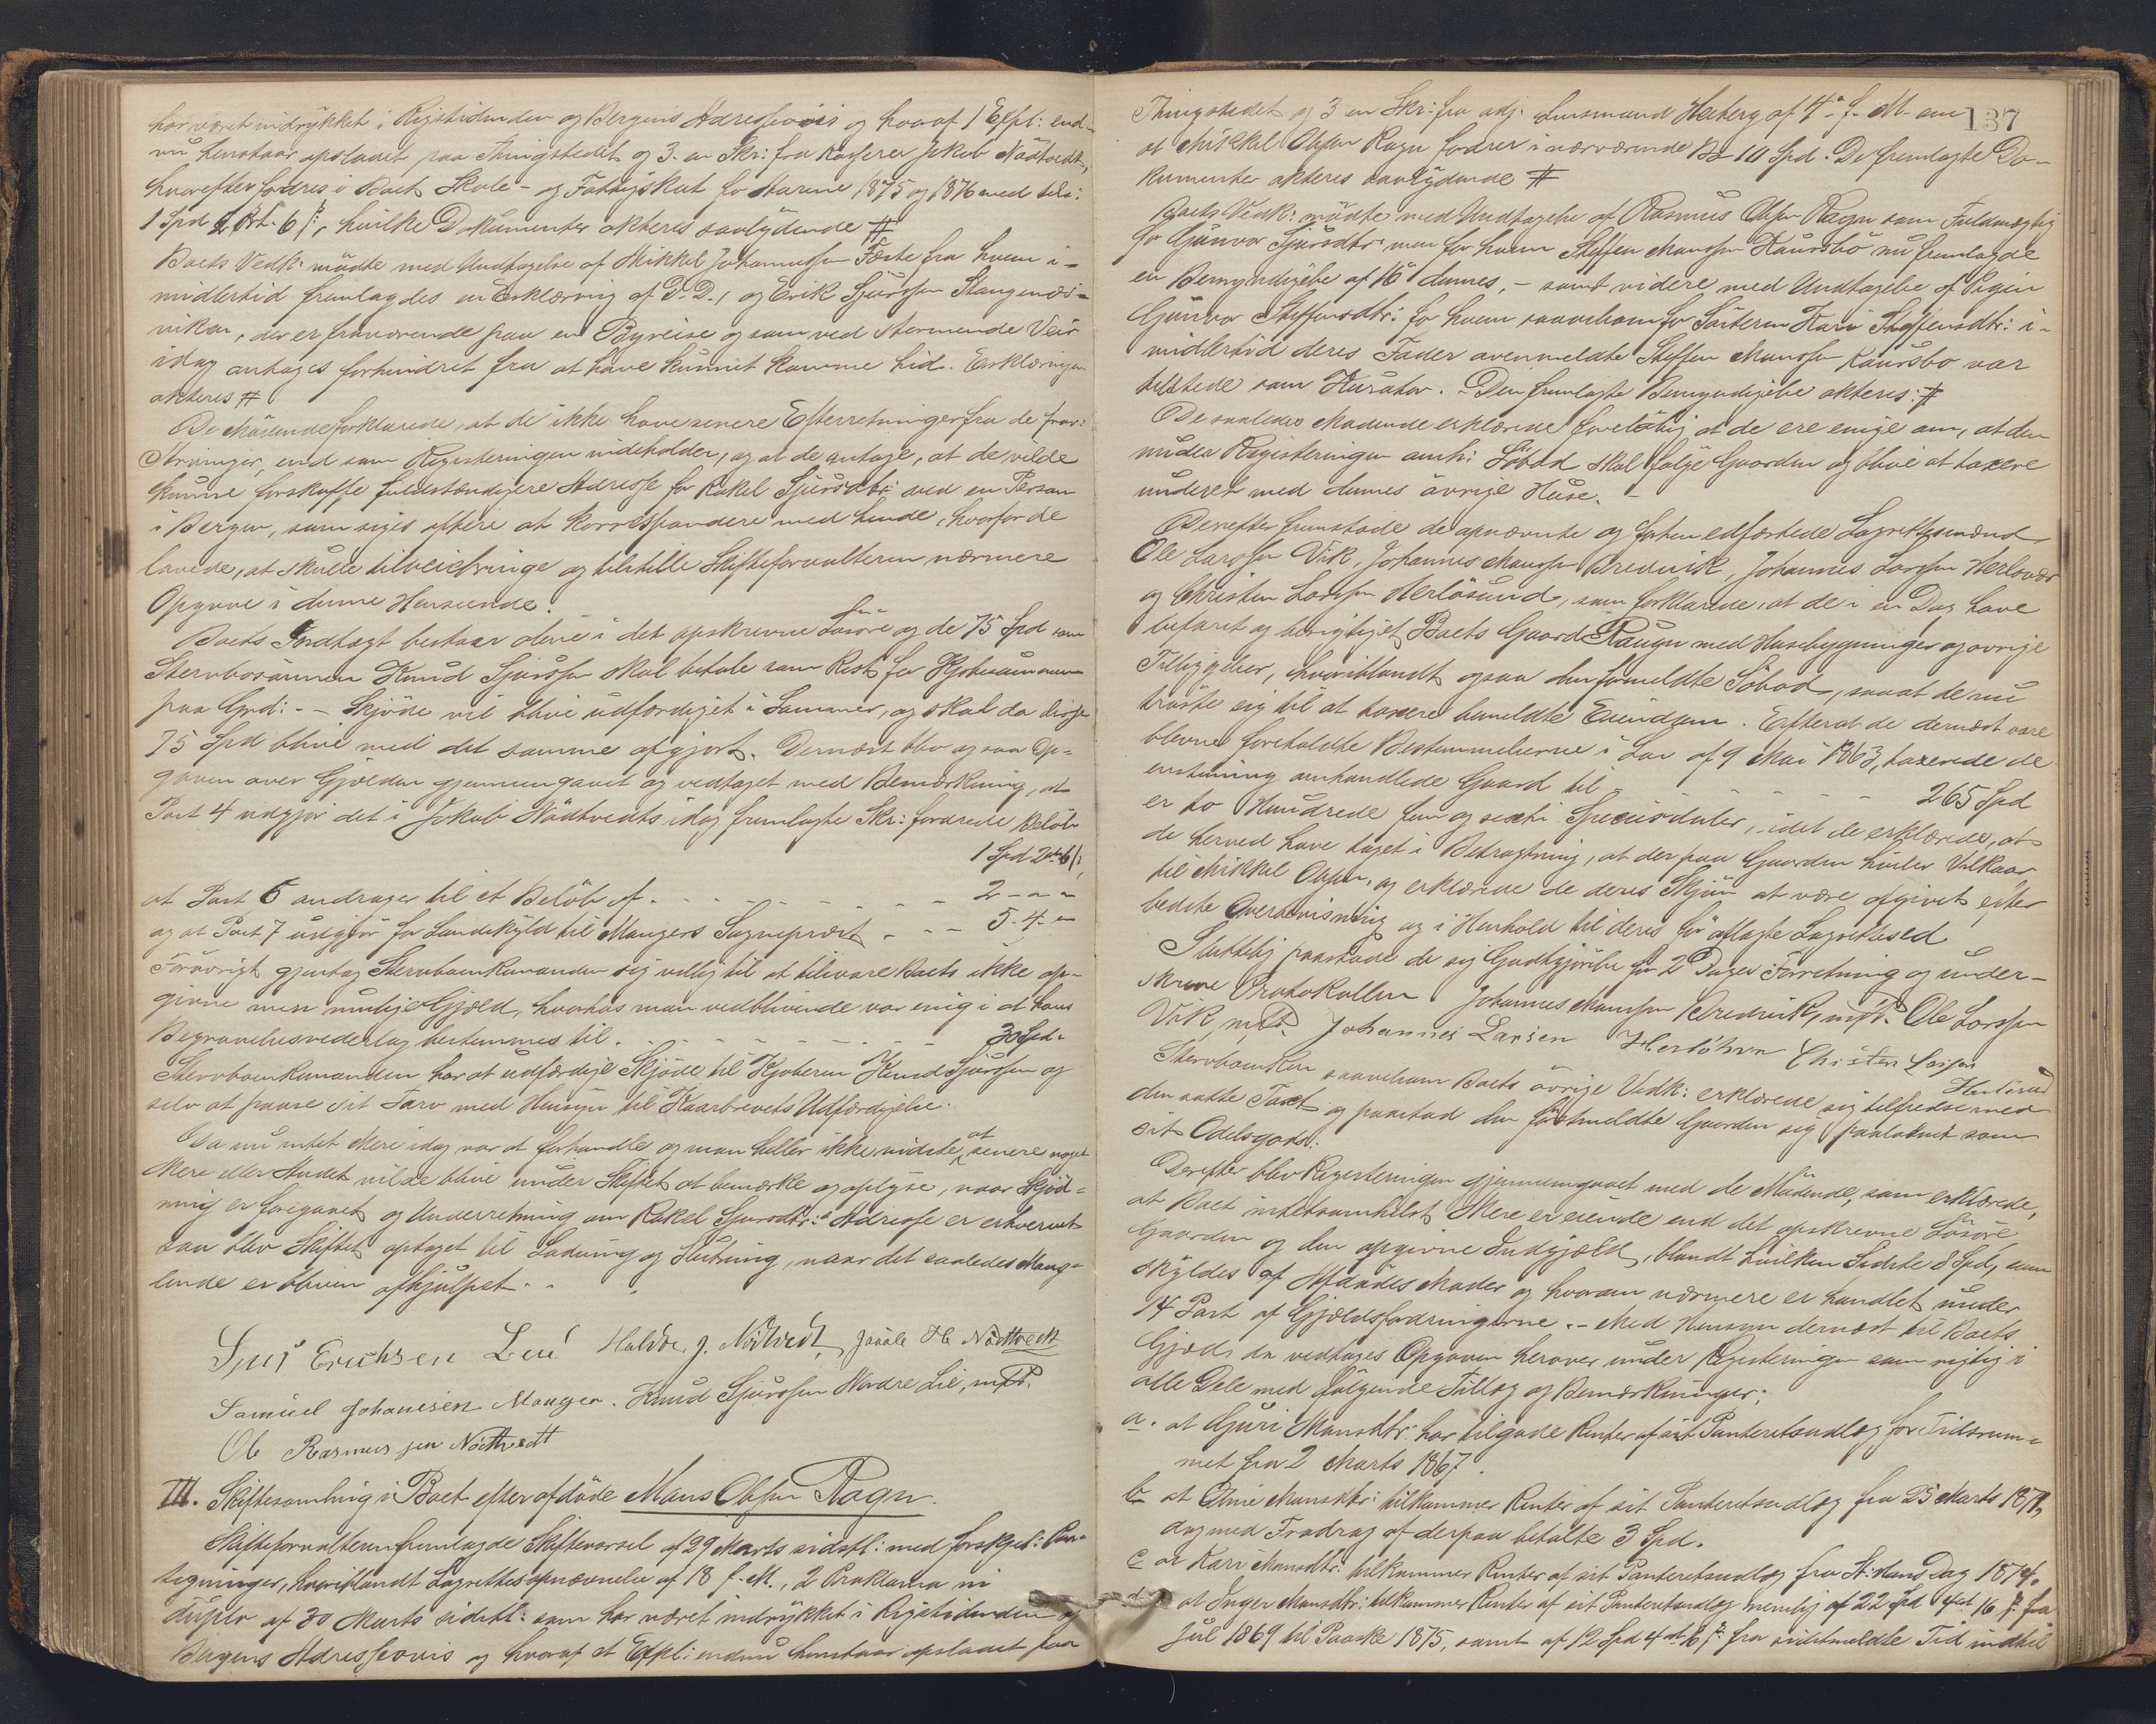 har været indrykket i Rigstidenden og Bergens Adresseavis og hvoraf 1 Expl: end-
nu henstaar opslaaet paa Thingstedet og 3. en Skr: fra Kasserer Jakob Nødtvedt,
hvorefter fordres i Boet Skole- og Fattigskat for Aarene 1875 og 1876 med tils:
1 Spd 2 Ort 6 s, hvilke Dokumenter akteres saalydende #
Boets Vedk: mødte med Undtagelse af Mikkel Johannessen Feste fra hvem i-
midlertid fremlagdes en Erklæring af D. D., og Erik Sjursen Stangenæs-
viken, der er fraværende paa en Byreise og som ved stormende Veir
idag antages forhindret fra at have kunnet komme hid. Erklæringen
akteres #
De Mødende forklarede, at de ikke have senere Efterretninger fra de fravæ:
Arvinger, end som Registeringen indeholder, og at de antage, at de vilde
kunne forskaffe fuldstændigere Adresse for Rakel Sjursdtr: ved en Person
i Bergen, som siges oftere at korrespondere med hende, hvorfor de
lovede, at skulle tilveiebringe og tilstille Skifteforvalteren nærmere
Opgave i denne Henseende.
Boets Indtægt bestaar alene i det opskrevne Løsøre og de 75 Spd som
Stervbosønnen Knud Sjursen skal betale som Rest for Kjøbesummen
paa Grd: - Skjøde vil blive udfærdiget i Sommer, og skal da disse
75 Spd blive med det samme afgjort. Dernæst blev ogsaa Op-
gaven over Gjælden gjennemgaaet og vedtaget med Bemærkning, at
Post 4 udgjør det i Jakob Nødtvedts idag fremlagte Skr: fordrede Beløb
1 Spd 2 ort 6 s
at Post 6 andrager til et Beløb af - - - 2 - " - "
og at Post 7 udgjør for Landskyld til Mangers Sogneprest - - - 5. 4. "
Forøvrigt gjentog Stervboenkemanden sig villig til at tilsvare Boets ikke op-
givne men mulige Gjæld, hvorhos man vedblivende var enig i at hans
Begravelsesvederlag bestemmes til - - - 30 Spd.
Stervboenkemanden har at udfærdige Skjøde til Kjøberen Knud Sjursen og
selv at paase sit Tarv med Hensyn til Kaarbrevets Udfærdigelse.
Da nu intet Mere idag var at forhandle og man heller ikke vidste, at senere noget
Mere eller Andet vilde blive under Skiftet at bemærke og oplyse, naar Skjød-
ning er foregaaet og Underretning om Rakel Sjursdtr:s Adresse er erhvervet
saa blev Skiftet optaget til Lodning og Slutning, naar det saaledes Mang-
lende er bleven afhjulpet.
Sjur Erichsen Lie Haldor J. Nødtvedt, Jakob Ols Nødtvedt
Samuel Johanesen Manger. Knud Sjursen Nordre Lie, m.f.P.
Ole Rasmussen Nødtvedt
III. Skiftesamling i Boet efter afdøde Mons Olsen Rogn.
Skifteforvalteren fremlagde Skiftevarsel af 29 Marts sidstl: med forskjel: Paa-
tegninger, hvoriblandt Lagrettesopnævnelse af 18 f. M., 2 Proklama in
duplo af 30 Marts sidstl: som har været indrykket i Rigstidenden og
Bergens Adresseavis og hvoraf et Expl: endnu henstaar opslaaet paa
137
Thingstedet og 3 en Skr: fra adj: Lensmand Heiberg af 4de f. M. om
at Mikkel Olsen Rogn fordrer i nærværende Bo 10 Spd. De fremlagte Do-
kumenter akteres saalydende #
Boets Vedk: mødte med Undtagelse af Rasmus Olsen Rogn som Fuldmægtig
for Gunvor Sjursdtr: men for hvem Steffen Monsen Kaursbø nu fremlagde
en Bemyndigelse af 16de dennes, - samt videre med Undtagelse af Pigen
Gunvor Steffensdtr: for hvem saavelsom for Søsteren Kari Steffensdtr: i-
midlertid deres Fader ovenmeldte Steffen Monsen Kaursbø var
tilstede som Kurator. - Den fremlagte Bemyndigelse akteres: #
De saaledes Mødende erklærede foreløbig at de ere enige om, at den
under Registeringen anf: Søbod skal følge Gaarden og blive at taxere
underet med dennes øvrige Huse. -
Derefter fremstode de opnævnte og forhen edfæstede Lagrettesmænd
Ole Larssen Vik, Johannes Monsen Bredvik, Johannes Larsen Herløvær
og Christen Larsen Herløsund, som forklarede, at de i en Dag have
befaret og besigtiget Boets Gaard Raugn med Husebygninger og øvrige
Tilliggelser, hvoriblandt ogsaa den formeldte Søbod, saaat de nu
trøste sig til at taxere bemeldte Eiendom. Efterat de dernæst vare
blevne foreholdte Bestemmelserne i Lov af 9 Mai 1863, taxerede de
enstemmig omhandlede Gaard til - - - - 265 Spd
er to Hundrede fem og sexti Speciesdaler, idet de erklærede, at
de herved have taget i Betragtning, at der paa Gaarden hviler Vilkaar
til Mikkel Olsen, og erklærede de deres Skjøn at være afgivet efter
bedste Overbevisning og i Henhold til deres før aflagte Lagrettesed
Sluttelig paastode de sig Godtgjørelse for 2 Dages Forretning og under-
skreve Protokollen Johannes Monsen Bredvik, m.f.P. Ole Larssen
Vik, m.f.P. Johannes Larsen Herløhvn Christen Larsen
Herlösund
Stervboenken saavelsom Boets øvrige Vedk: erklærede sig tilfredse med
den satte Taxt og paastod den førstmeldte Gaarden sig paalodnet som
sit Odelsgods.
Derefter blev Registeringen gjennemgaaet med de Mødende, som erklærede,
at Boet intetsomhelst Mere er eiende end det opskrevne Løsøre,
Gaarden og den opgivne Indgjæld, blandt hvilken Sidste 8 Spd, som
skyldes af Afdødes Moder og hvorom nærmere er handlet under
14 Post af Gjældsfordringerne. - Med Hensyn dernæst til Boets
Gjæld, da vedtages Opgaven herover under Registeringen som rigtig i
alle Dele med følgende Tillæg og Bemærkninger;
a. at Guri Monsdtr: har tilgode Renter af sit Panteretsudlæg for Tidsrum-
met fra 2 Marts 1867.
b at Anne Monsdtr: tilkommer Renter af sit Panteretsudlæg fra 25 Marts 1871,
dog med Fradrag af derpaa betalte 3 Spd.
c at Kari Monsdtr: tilkommer Renter af sit Panteretsudlæg fra St: Hans Dag 1874.
d at Inger Monsdtr: tilkommer Renter af sit Panteretsudlæg nemlig af 22 Spd 4 ort 16 s fra
Jul 1869 til Paaske 1875, samt af 12 Spd 4 ort 6 s fra sidstmeldte Tid indtil